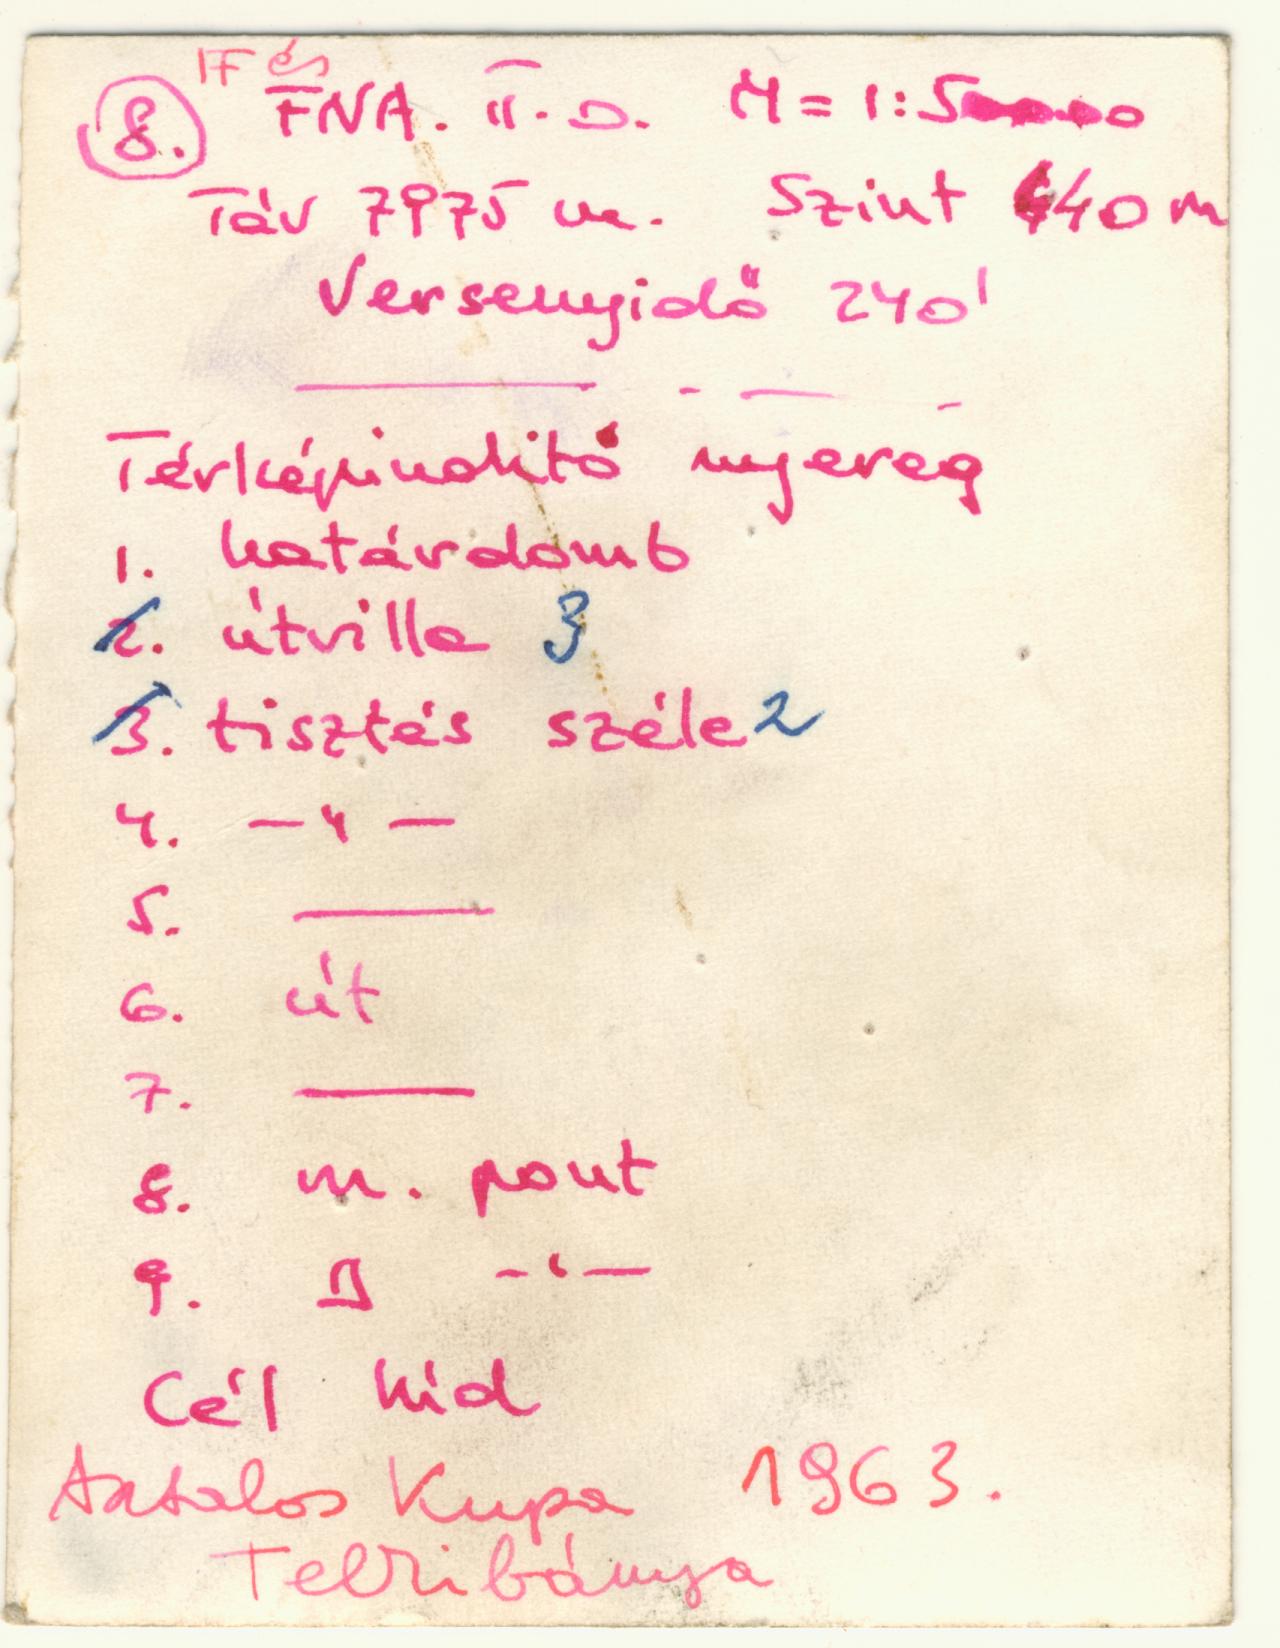 IF és
8. FNA. II. o. M = 1:50000
Táv 7975 m. Szint 440 m
Versenyidő 240'
Térképindító nyereg
1. határdomb
2. útvilla 3
3. tisztás széle 2
4. — " —
5. ———
6. út
7. ———
8. m. pont
9. B — " —
Cél híd
Antalos Kupa 1963.
Telkibánya